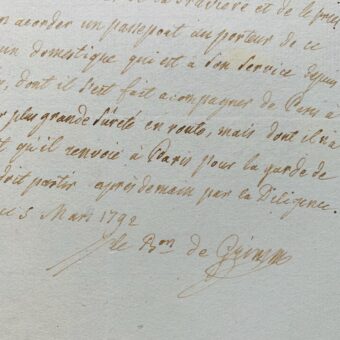 de la Bavière et de le prier
accorder un passeport au porteur de ce
un domestique qui est à son service depuis
dont il s'est fait acompagner de Paris à
plus grande sureté en route, mais dont il n'a
qu'il renvoie à Paris pour la garde de
doit partir après demain par la Diligence.
ce 5 Mars 1792
le Bon de